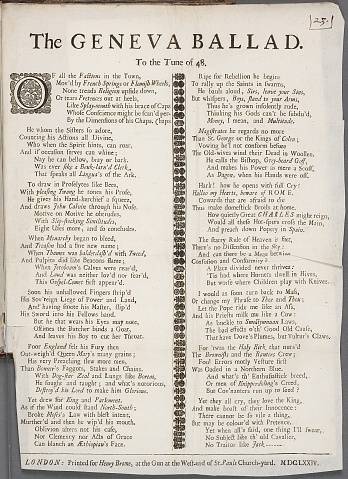 23.
The GENEVA BALLAD.
To the Tune of 48.
OF all the Factions in the Town,
Mov'd by French Springs or Flemish Wheels,
None treads Religion upside down,
Or tears Pretences out at heels,
Like Splay-mouth with his brace of Caps
Whose Conscience might be scan'd per-
By the Dimensions of his Chaps. (haps
He whom the Sisters so adore,
Counting his Actions all Divine,
Who when the Spirit hints, can roar,
And if occasion serves can whine;
Nay he can bellow, bray or bark.
Was ever sike a Beuk-larn'd Clerk,
That speaks all Lingua's of the Ark.
To draw in Proselytes like Bees,
With pleasing Twang he tones his Prose,
He gives his Hand-kerchief a squeez,
And draws John Calvin through his Nose.
Motive on Motive he obtrudes,
With Slip-stocking Similitudes,
Eight Uses more, and so concludes.
When Monarchy began to bleed,
And Treason had a fine new name;
When Thames was balderdash'd with Tweed,
And Pulpits did like Beacons flame;
When Jeroboam's Calves were rear'd,
And Laud was neither lov'd nor fear'd,
This Gospel-Comet first appear'd.
Soon his unhallowed Fingers strip'd
His Sov'reign Liege of Power and Land,
And having smote his Master, slip'd
His Sword into his Fellows hand.
But he that wears his Eyes may note,
Ofttimes the Butcher binds a Goat,
And leaves his Boy to cut her Throat.
Poor England felt his Fury then
Out-weigh'd Queen Mary's many grains;
His very Preaching slew more men,
Than Bonner's Faggots, Stakes and Chains.
With Dog-star Zeal and Lungs like Boreas,
He fought and taught; and what's notorious,
Destroy'd his Lord to make him Glorious.
Yet drew for King and Parliament,
As if the Wind could stand North-South;
Broke Moses's Law with blest intent,
Murther'd and then he wip'd his mouth.
Oblivion alters not his case,
Nor Clemency nor Acts of Grace
Can blanch an Æthiopian's Face.
Ripe for Rebellion he begins
To rally up the Saints in swarms,
He bawls aloud, Sirs, leave your Sins,
But whispers, Boys, stand to your Arms,
Thus he's grown insolently rude,
Thinking his Gods can't be subdu'd,
Money, I mean, and Multitude.
Magistrates he regards no more
Than St. George or the Kings of Colen;
Vowing he'l not conform before
The Old-wives wind their Dead in Woollen.
He calls the Bishop, Grey-beard Goff,
And makes his Power as mere a Scoff,
As Dagon, when his Hands were off.
Hark! how he opens with full Cry!
Hallow my Hearts, beware of ROME.
Cowards that are afraid to die
Thus make domestick Broils at home.
How quietly Great CHARLES might reign,
Would all these Hot-spurs cross the Main,
And preach down Popery in Spain.
The starry Rule of Heaven is fixt,
There's no Dissension in the Sky:
And can there be a Mean betwixt
Confusion and Conformity?
A Place divided never thrives:
'Tis bad where Hornets dwell in Hives,
But worse where Children play with Knives.
I would as soon turn back to Mass,
Or change my Phrase to Thee and Thou;
Let the Pope ride me like an Ass,
And his Priests milk me like a Cow:
As buckle to Smectymnuan Laws,
The bad effects o'th' Good Old Cause,
That have Dove's Plumes, but Vultur's Claws.
For 'twas the Holy Kirk that nurs'd
The Brownists and the Ranters Crew;
Foul Errors motly Vesture first
Was Oaded in a Northern Blue.
And what's th' Enthusiastick breed,
Or men of Knipperdoling's Creed,
But Cov'nanters run up to seed?
Yet they all cry, they love the King,
And make boast of their Innocence:
There cannot be so vile a thing,
But may be colour'd with Pretence.
Yet when all's said, one thing I'll swear,
No Subject like th' old Cavalier,
No Traitor like Jack
LONDON: Printed for Henry Brome, at the Gun at the West-end of St. Pauls Church-yard. MDCLXXIV.